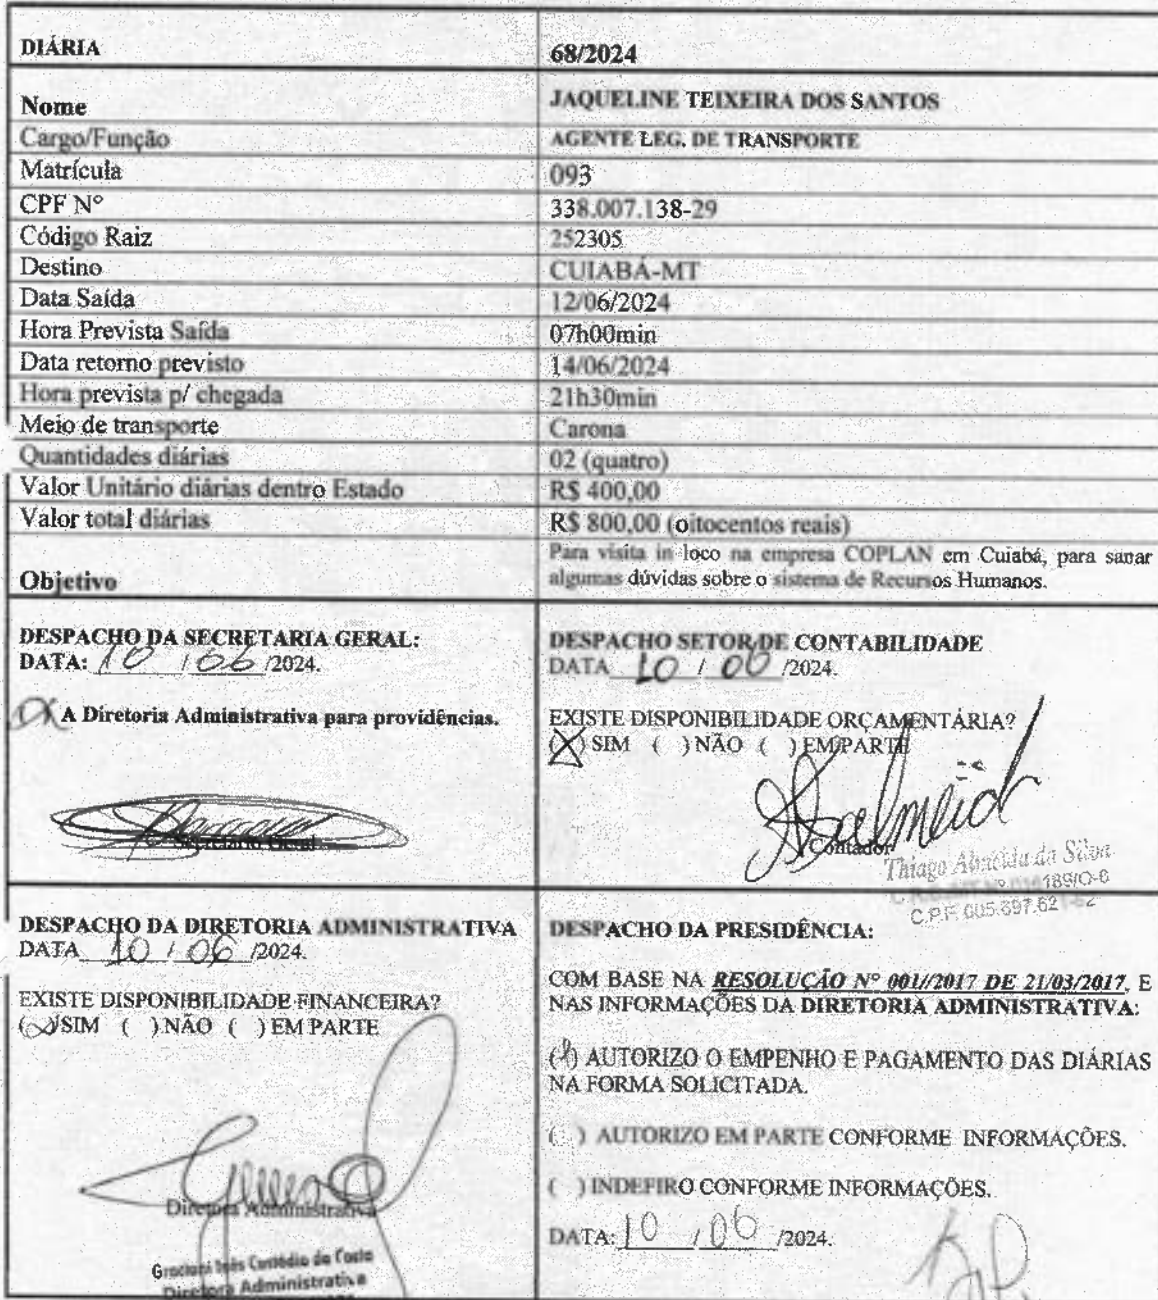 DIÁRIA 68/2024
Nome JAQUELINE TEIXEIRA DOS SANTOS
Cargo/Função AGENTE LEG. DE TRANSPORTE
Matrícula 093
CPF Nº 338.007.138-29
Código Raiz 252305
Destino CUIABÁ-MT
Data Saída 12/06/2024
Hora Prevista Saída 07h00min
Data retorno previsto 14/06/2024
Hora prevista p/ chegada 21h30min
Meio de transporte Carona
Quantidades diárias 02 (quatro)
Valor Unitário diárias dentro Estado R$ 400,00
Valor total diárias R$ 800,00 (oitocentos reais)
Objetivo
Para visita in loco na empresa COPLAN em Cuiabá, para sanar
algumas dúvidas sobre o sistema de Recursos Humanos.
DESPACHO DA SECRETARIA GERAL:
DATA: 10 / 06 /2024.
(X A Diretoria Administrativa para providências.
Secretário Geral
DESPACHO SETOR DE CONTABILIDADE
DATA 10 / 06 /2024.
EXISTE DISPONIBILIDADE ORÇAMENTÁRIA?
(X) SIM ( ) NÃO ( ) EM PARTE
Contador
Thiago Almeida da Silva
C.P.F. 005.697.62
DESPACHO DA DIRETORIA ADMINISTRATIVA
DATA 10 / 06 /2024.
EXISTE DISPONIBILIDADE FINANCEIRA?
(X) SIM ( ) NÃO ( ) EM PARTE
Diretora Administrativa
Graciani Inês Custódio da Costa
Diretora Administrativa
DESPACHO DA PRESIDÊNCIA:
COM BASE NA RESOLUÇÃO Nº 001//2017 DE 21/03/2017, E
NAS INFORMAÇÕES DA DIRETORIA ADMINISTRATIVA:
(X) AUTORIZO O EMPENHO E PAGAMENTO DAS DIÁRIAS
NA FORMA SOLICITADA.
( ) AUTORIZO EM PARTE CONFORME INFORMAÇÕES.
( ) INDEFIRO CONFORME INFORMAÇÕES.
DATA: 10 / 06 /2024.